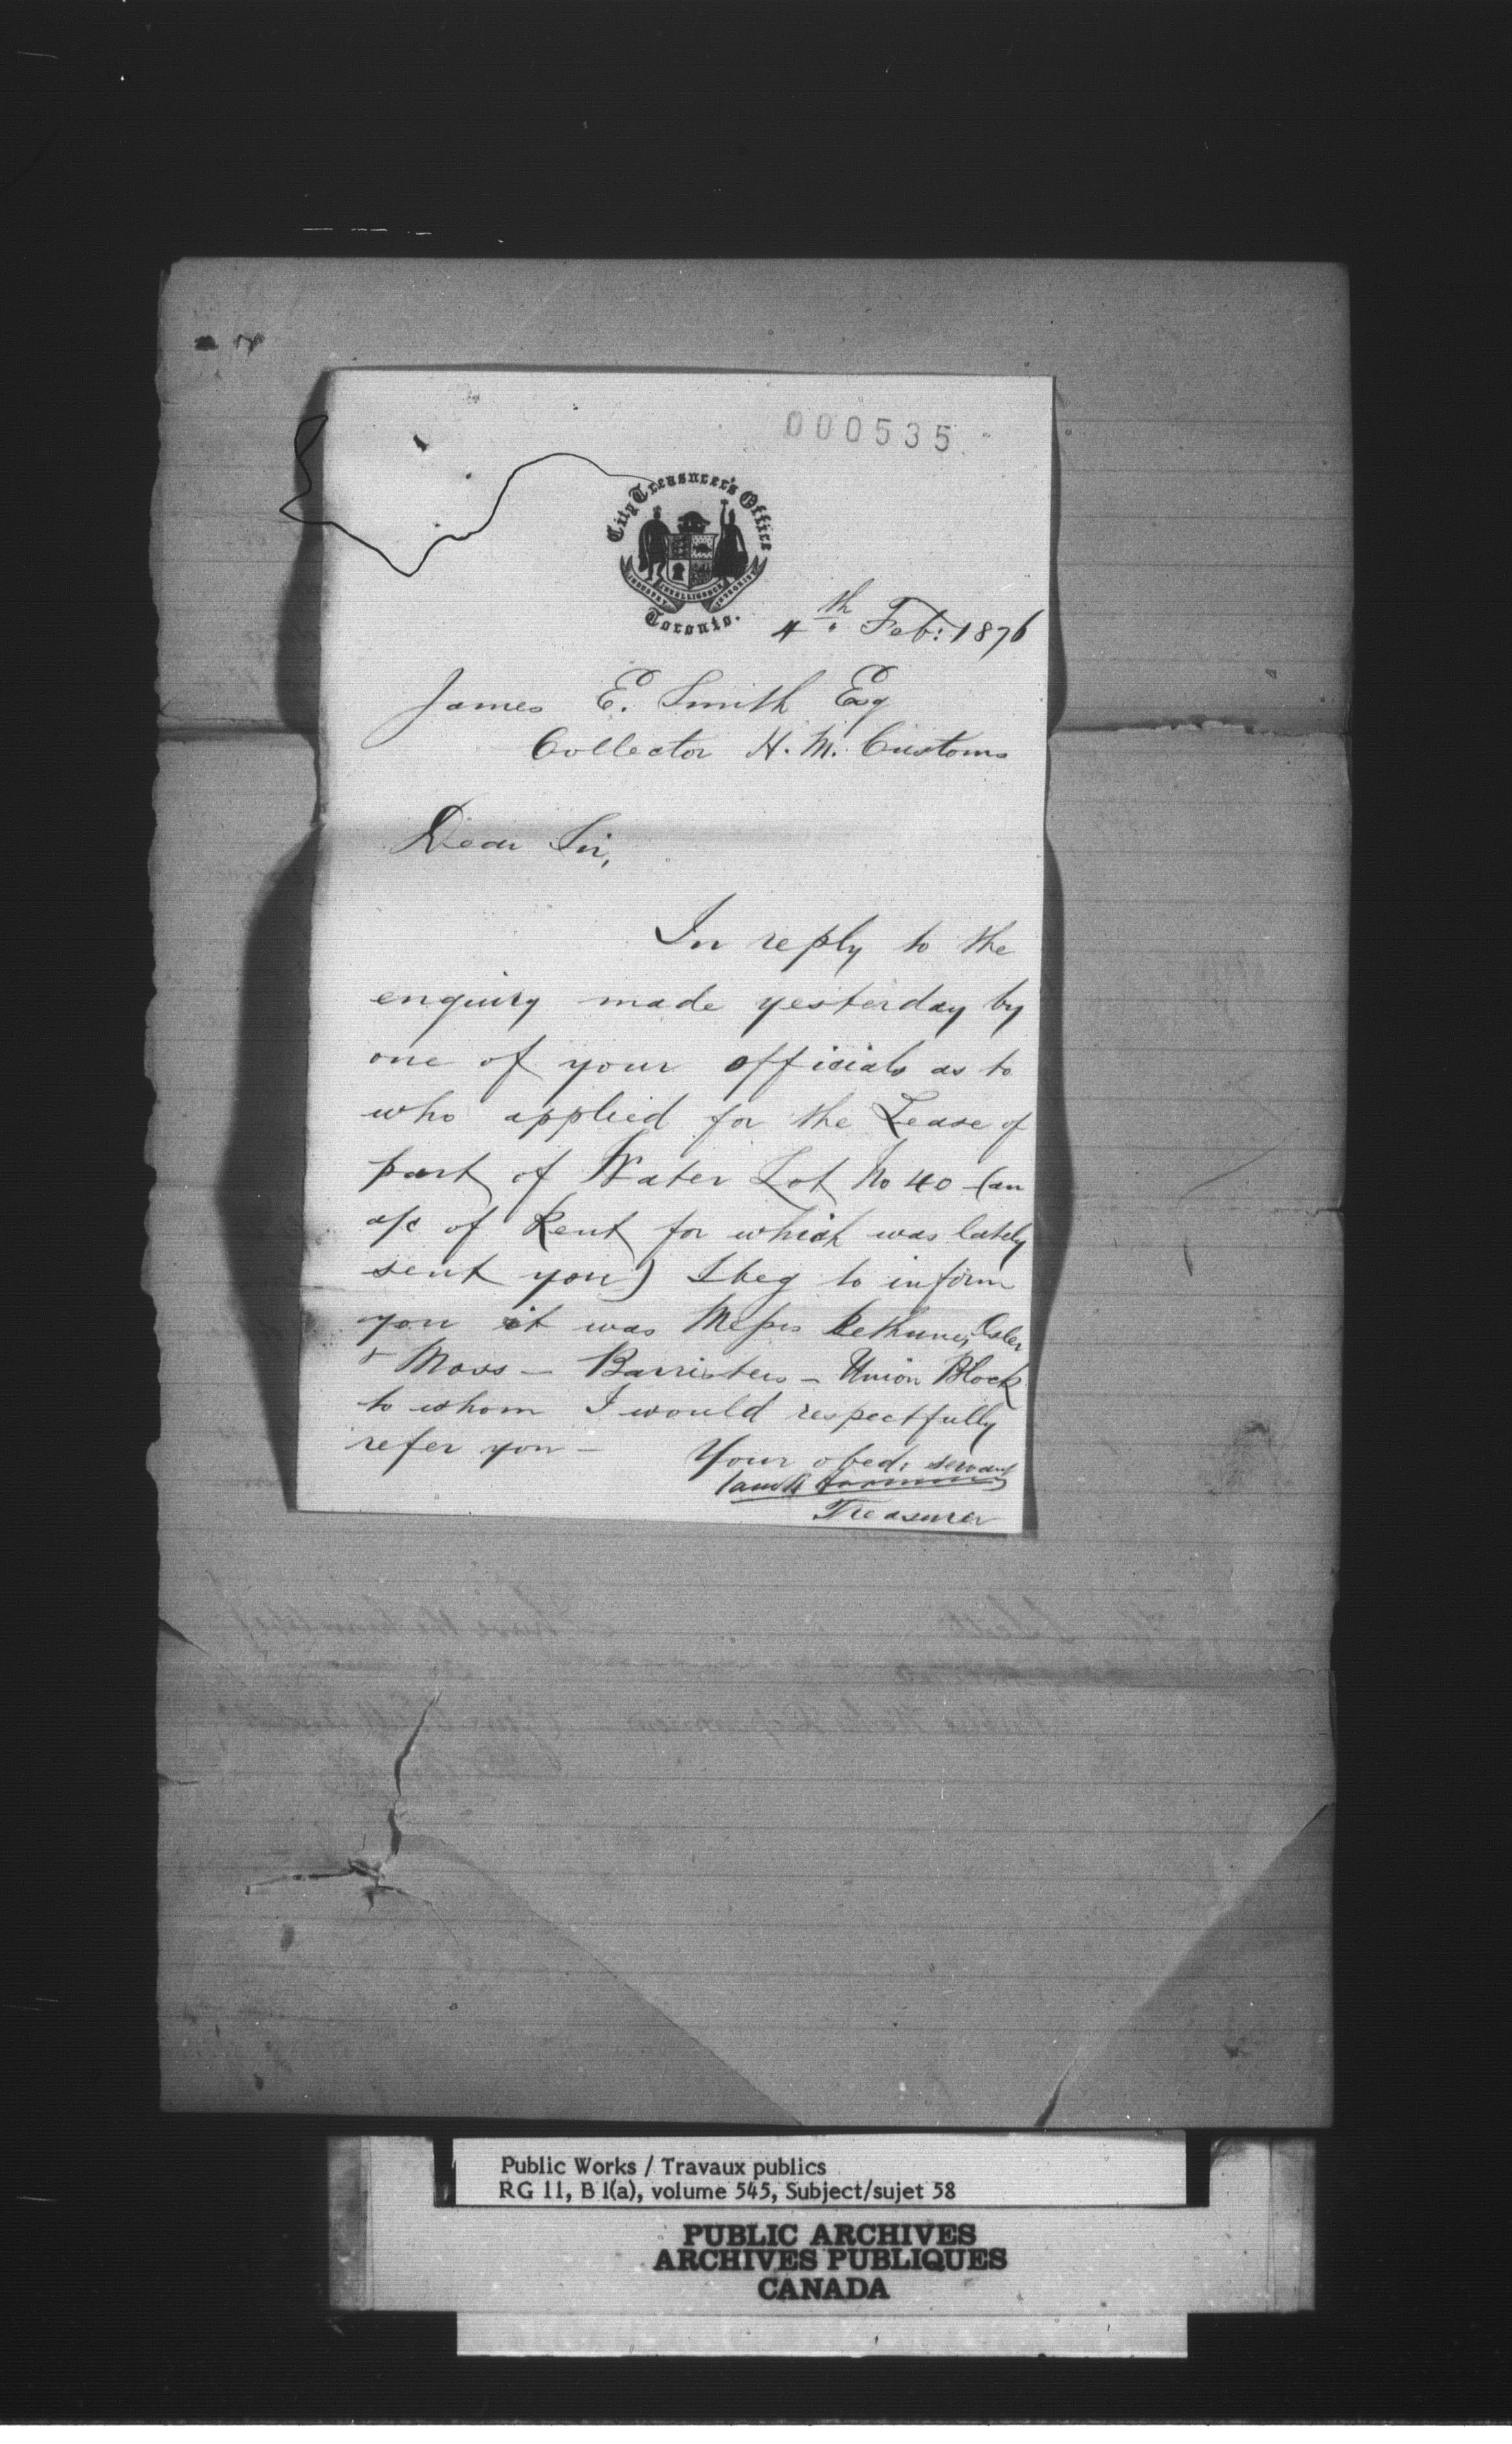 000535
City Treasurer's Office
INDUSTRY INTELLIGENCE INTEGRITY
Toronto.
4th Feb: 1876
James E. Smith Esq
Collector H. M. Customs
Dear Sir,
In reply to the
enquiry made yesterday by
one of your officials as to
who applied for the Lease of
part of Water Lot No 40 (an
a/c of Rent for which was lately
sent you) I beg to inform
you it was Messrs Bethune, Osler
& Moss – Barristers – Union Block
to whom I would respectfully
refer you –
Your obed: servant
Treasurer
Public Works / Travaux publics
RG 11, B 1(a), volume 545, Subject/sujet 58
PUBLIC ARCHIVES
ARCHIVES PUBLIQUES
CANADA